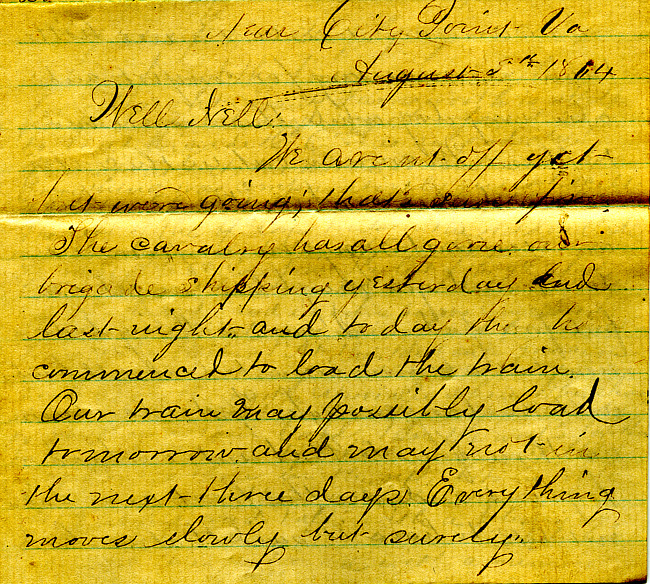 Near City Point Va
August 8th 1864
Well Nell:
We are nt off yet
but we're going, that's
The cavalry has all gone our
brigade shipping yesterday and
last night, and to day the
commenced to load the train.
Our train may possibly load
tomorrow and may not in
the next three days. Everything
moves slowly but surely.